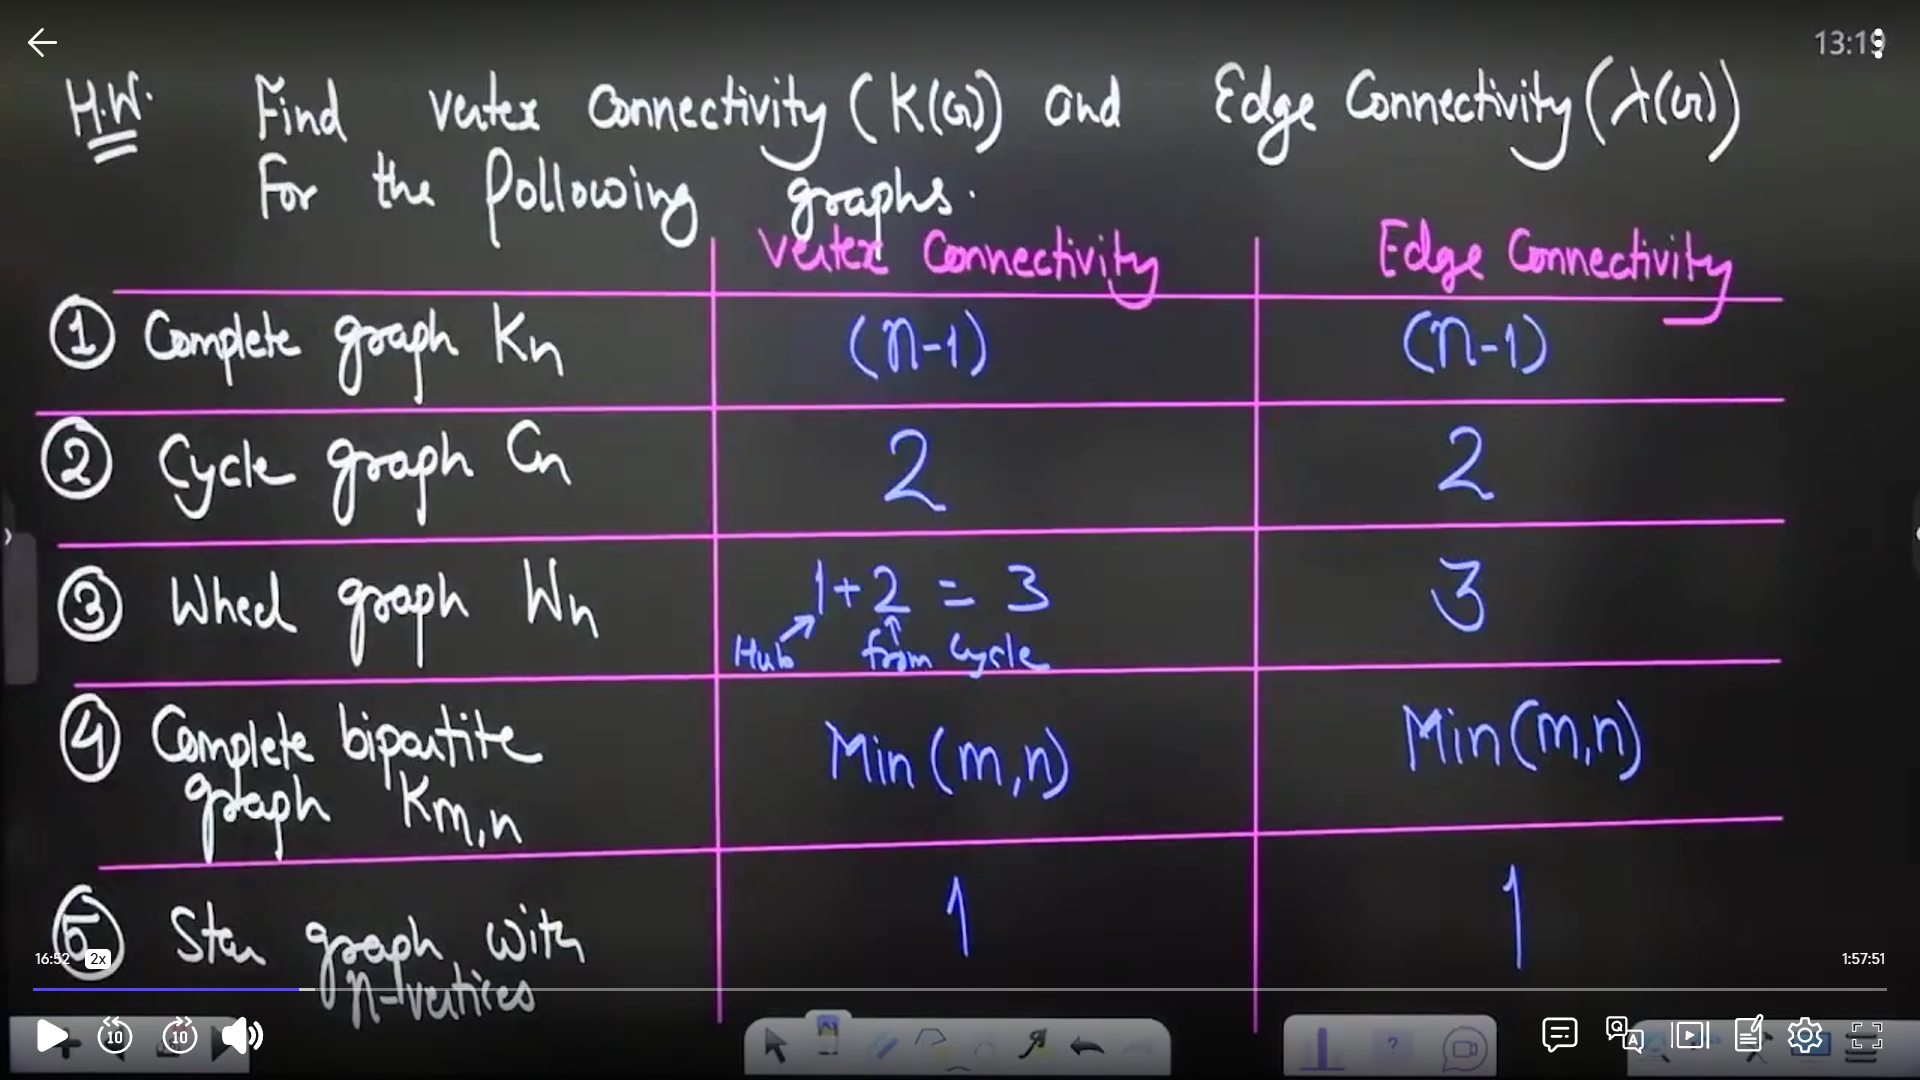 13:19
H.W. Find vertex Connectivity (K(G)) and Edge Connectivity (λ(G))
For the following graphs.
Vertex Connectivity Edge Connectivity
① Complete graph Kn (n-1) (n-1)
② Cycle graph Cn 2 2
③ Wheel graph Wn 1+2 = 3 3
Hub from Cycle
④ Complete bipartite
graph Km,n Min(m,n) Min(m,n)
⑤ Star graph with 1 1
n-vertices
16:52 2x 1:57:51
10 10